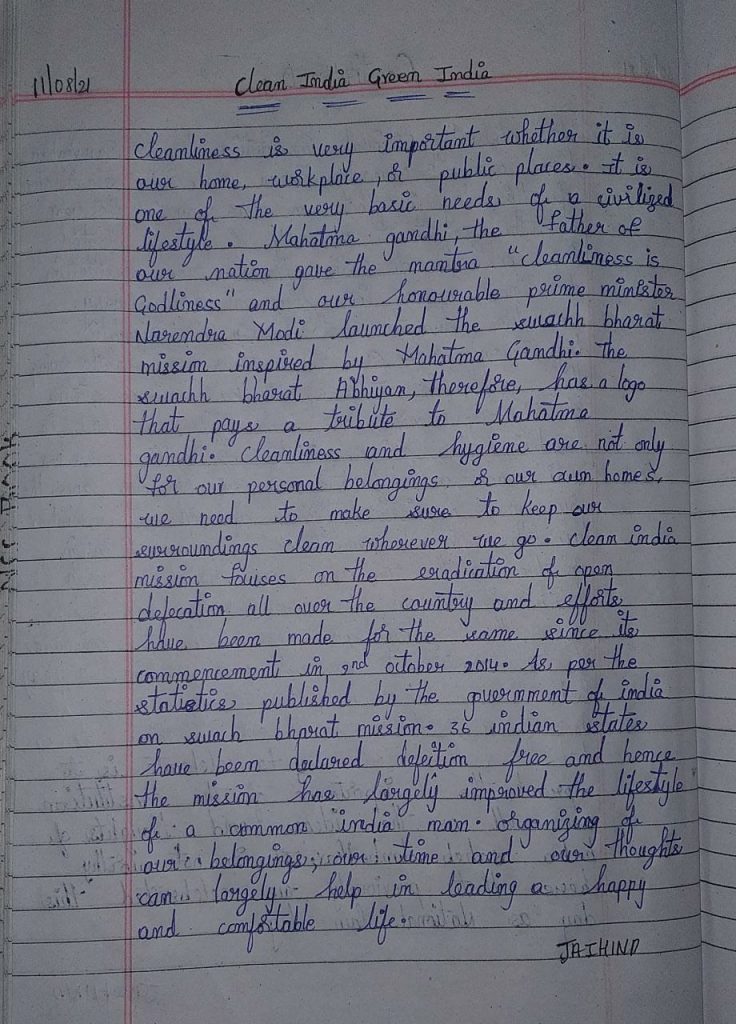 11/08/21
Clean India Green India
Cleanliness is very important whether it is
our home, workplace, or public places. It is
one of the very basic needs of a civilized
lifestyle. Mahatma gandhi, the father of
our nation gave the mantra "cleanliness is
Godliness" and our honourable prime minister
Narendra Modi launched the swachh bharat
mission inspired by Mahatma Gandhi. The
swachh bharat Abhiyan, therefore, has a logo
that pays a tribute to Mahatma
gandhi. Cleanliness and hygiene are not only
for our personal belongings or our own homes,
we need to make sure to keep our
surroundings clean wherever we go. clean india
mission fouises on the eradication of open
defecation all over the country and efforts
have been made for the same since its
commencement in 2nd october 2014. As per the
statistics published by the government of india
on swach bharat mission. 36 indian states
have been declared defection free and hence
the mission has largely improved the lifestyle
of a common india man. organizing of
our belongings, our time and our thoughts
can largely help in leading a happy
and comfortable life.
JAIHIND